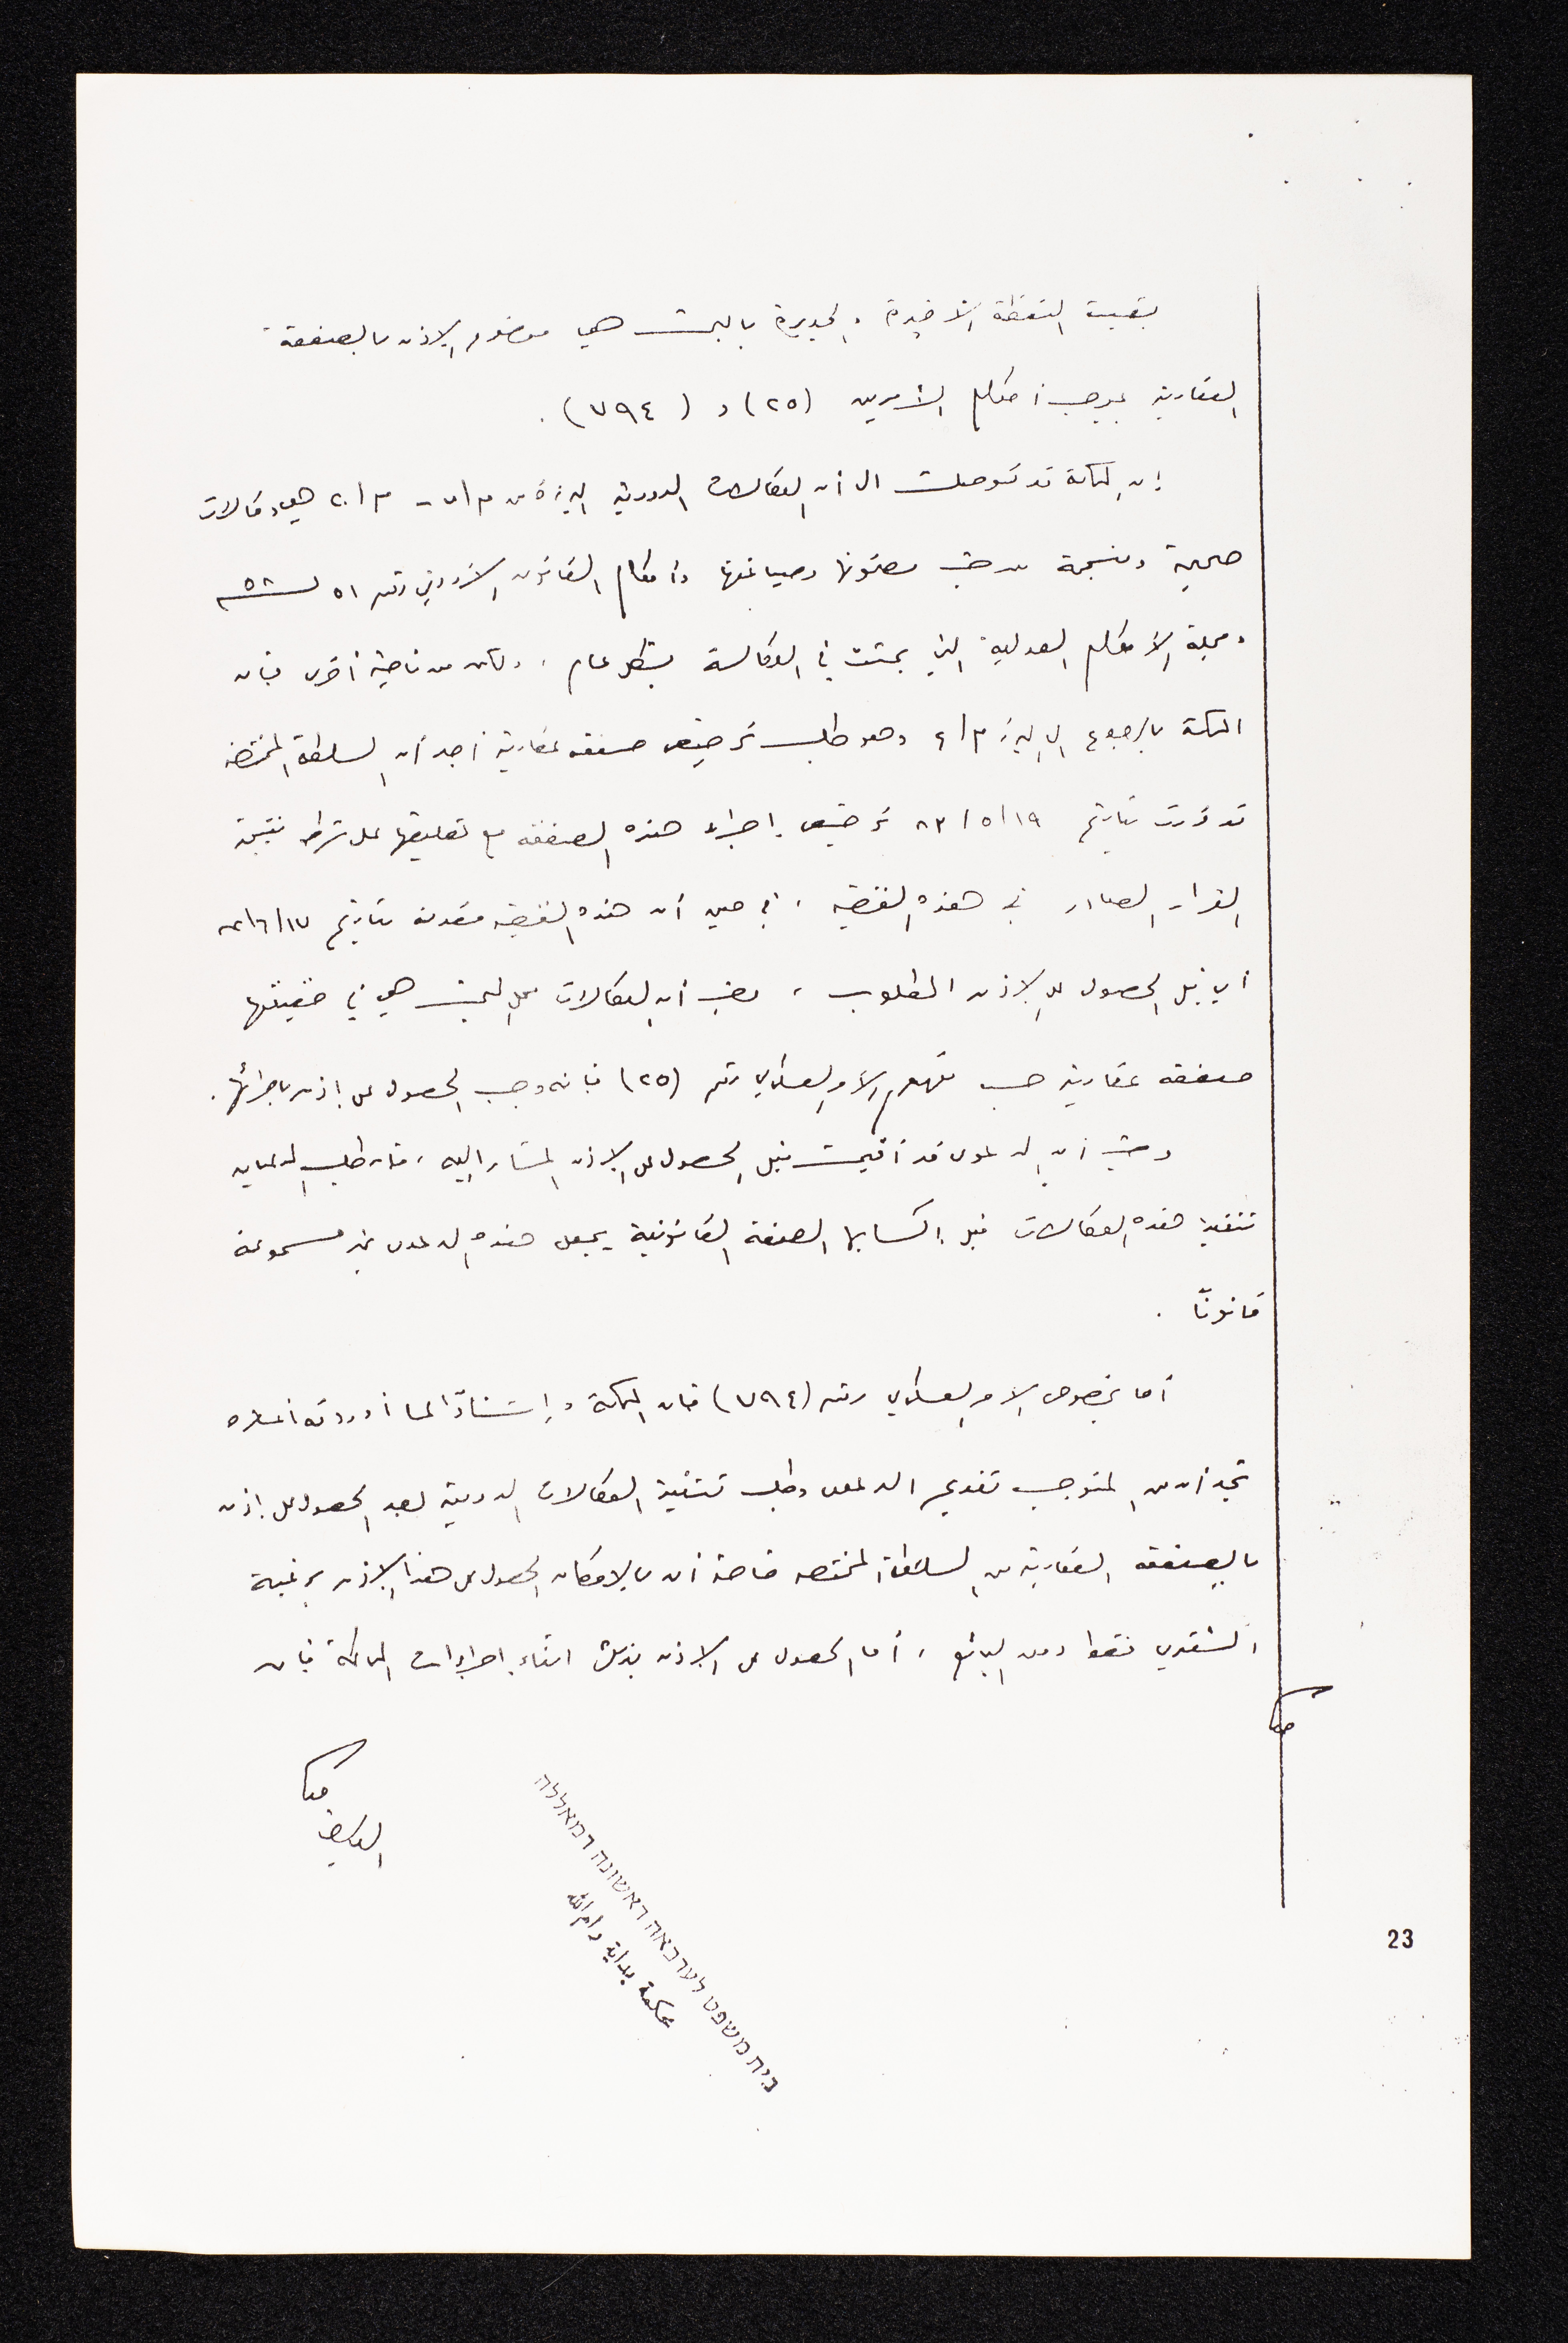 بقيت النقطة الأخيرة والجديرة بالبحث هي موضوع الإذن بالصفقة
العقارية بموجب أحكام الأمرين (٢٥) و (٧٩٤).
إن المحكمة قد توصلت الى أن الوكالات الدورية المبرزة من م/٧ - م/٢٠ هي وكالات
صحيحة ومنسجمة من حيث مضمونها وصياغتها وأحكام القانون الأردني رقم ٥١ لسنة ٥٨
ومجلة الأحكام العدلية التي بحثت في الوكالة بشكل عام، ولكن من ناحية أخرى فإن
المحكمة بالرجوع الى المبرز م/٤ وهو طلب ترخيص صفقة عقارية أجد أن السلطة المختصة
قد قررت بتاريخ ٨٣/٥/١٩ ترخيص إجراء هذه الصفقة مع تعليقها على شرط نتيجة
القرار الصادر في هذه القضية، في حين أن هذه القضية مقدمة بتاريخ ٦/١٧
أي قبل الحصول على الإذن المطلوب، وحيث أن الوكالات محل البحث هي في حقيقتها
صفقة عقارية حسب مفهوم الأمر العسكري رقم (٢٥) فإنه وجب الحصول على إذن بإجرائها.
وحيث أن الدعوى قد أقيمت قبل الحصول على الإذن المشار إليه، فإن طلب المدعيان
تنفيذ هذه الوكالات قبل إكسابها الصفة القانونية يجعل هذه الدعوى غير مسموعة
قانوناً.
أما بخصوص الأمر العسكري رقم (٧٩٤) فإن المحكمة وإستناداً لما أوردته أعلاه
تجد أن من المتوجب تقديم الدعوى وطلب تنفيذ الوكالات الدورية بعد الحصول على إذن
بالصفقة العقارية من السلطة المختصة خاصة أن بالإمكان الحصول على هذا الإذن برغبة
المشتري فقط دون البائع، أما الحصول على الإذن بذلك اثناء إجراءات المحاكمة فإن
בית משפט לערכאה ראשונה רמאללה
محكمة بداية رام الله
23